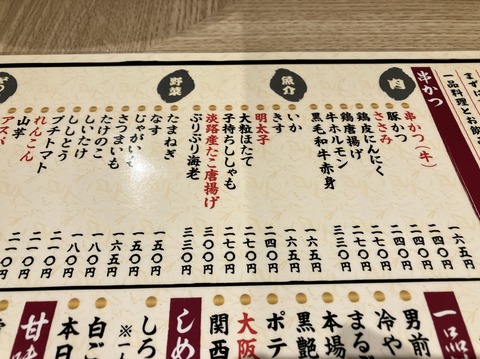 まずは
一品料理とお飲
串かつ
肉
串かつ（牛）
豚かつ
ささみ
鶏皮にんにく
鶏唐揚げ
牛ホルモン
黒毛和牛赤身
一六五円
二四〇円
二四〇円
二四〇円
二七〇円
二七〇円
三三〇円
魚介
いか
きす
明太子
大粒ほたて
子持ちししゃも
淡路産たこ唐揚げ
ぷりぷり海老
一六五円
一六五円
二四〇円
二七〇円
二七〇円
三〇〇円
三三〇円
野菜
たまねぎ
なす
じゃがいも
さつまいも
たけのこ
しいたけ
ししとう
プチトマト
れんこん
山芋
アスパ
一五〇円
一五〇円
一六五円
一八〇円
一八〇円
二一〇円
二一〇円
一品
男前
冷や
まる
本場
黒艶
ポテ
大阪
関西
しめ
しろ
白ご
本日
甘味